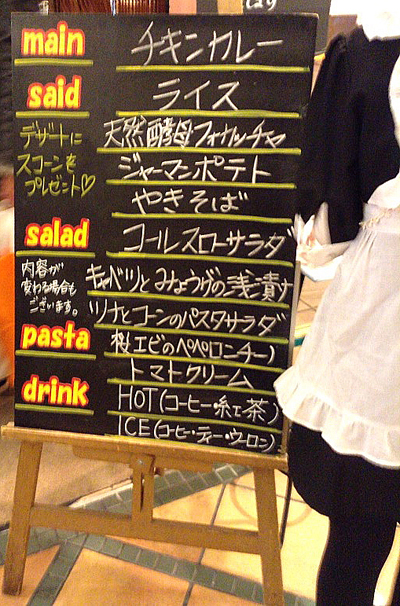 main チキンカレー
said ライス
天然酵母フォカッチャ
デザートに
スコーンを
プレゼント♡
ジャーマンポテト
やきそば
salad コールスローサラダ
内容が
変わる場合も
ございます。
キャベツとみょうげの浅漬け
ツナとコーンのパスタサラダ
pasta 桜エビのペペロンチーノ
トマトクリーム
drink HOT(コーヒー・紅茶)
ICE(コーヒー・ティー・ウーロン)